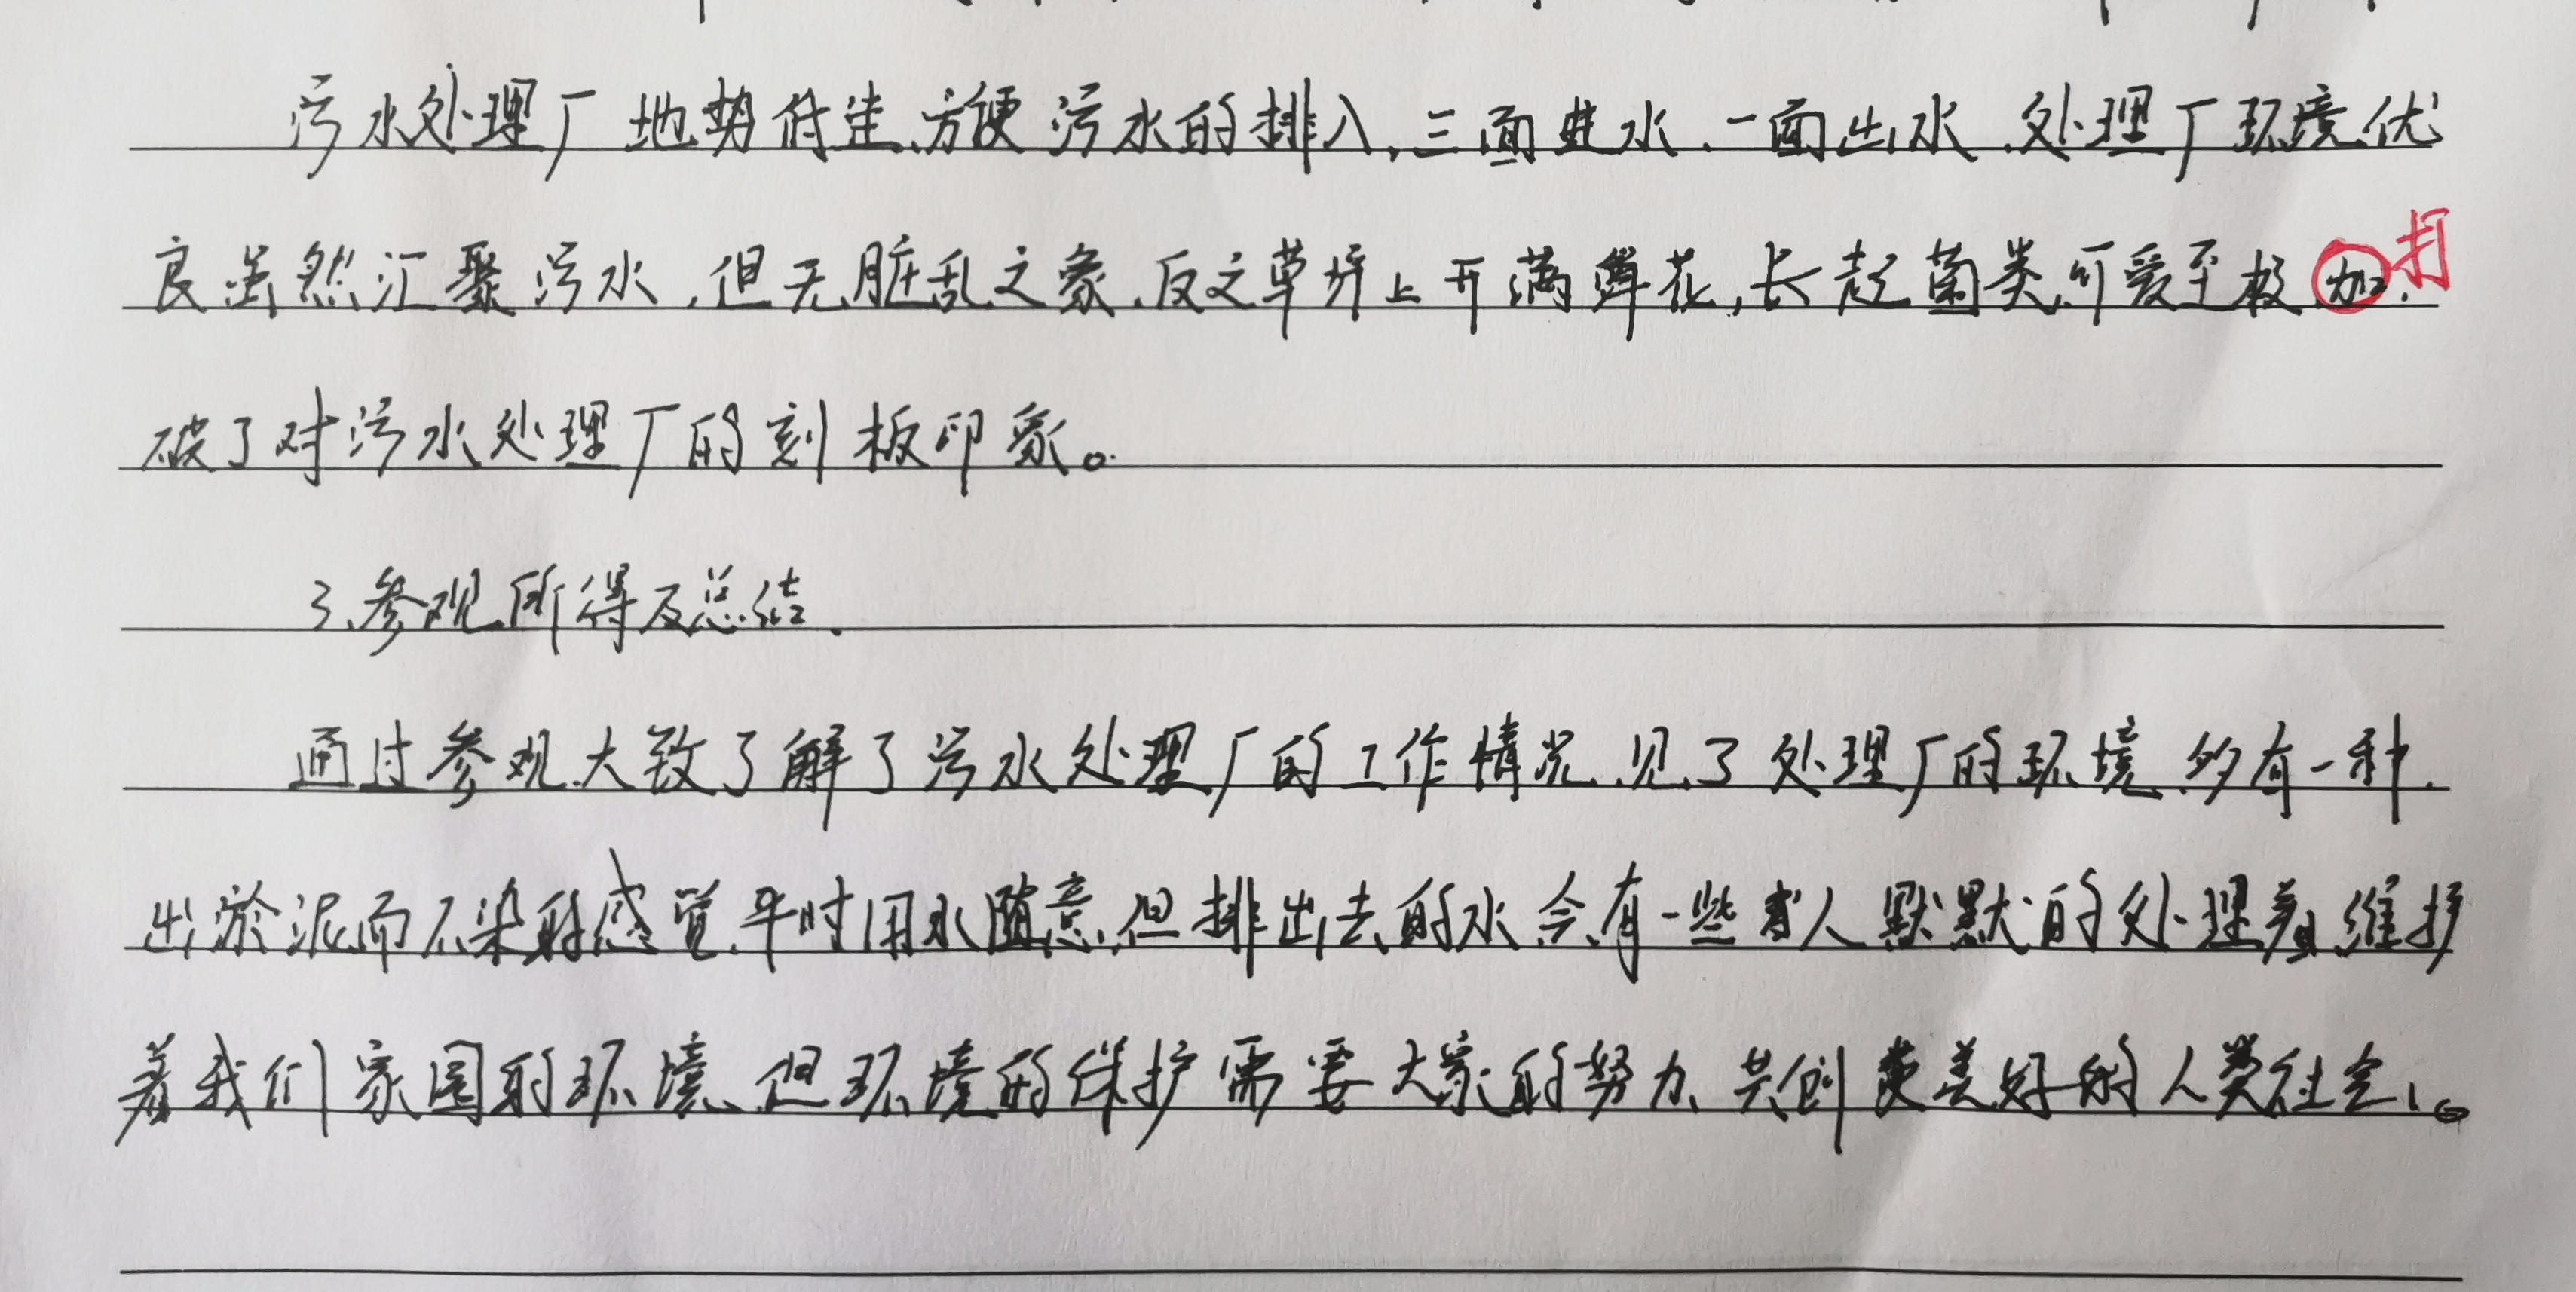 污水处理厂地势低洼、方便污水的排入,三面进水、一面出水、处理厂环境优
良虽然汇聚污水,但无脏乱之象、反之草坪上开满鲜花,长起菌类、可爱至极、加、打
破了对污水处理厂的刻板印象。
3、参观所得及总结、
通过参观、大致了解了污水处理厂的工作情况、见了处理厂的环境、多有一种、
出淤泥而不染的感觉、平时用水随意、但排出去的水会有一些人默默的处理着、维护
着我们家园的环境、但环境的保护需要大家的努力、共创更美好的人类社会、。